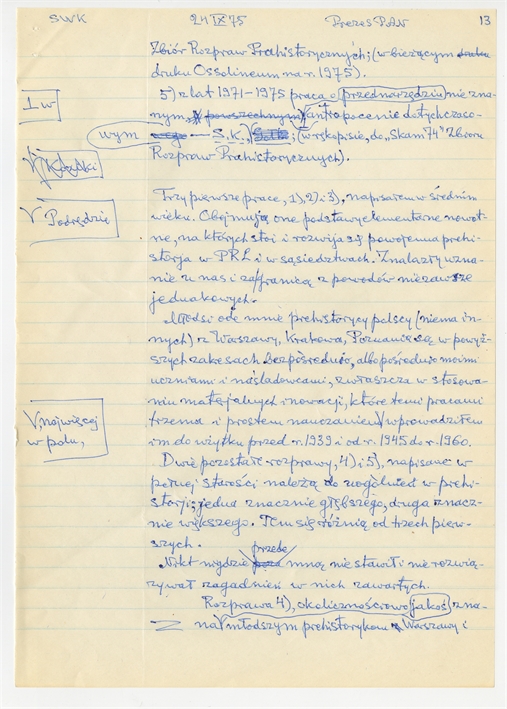 SWK 24 IX 75 Prezes PAN 13
Zbiór Rozpraw Prahistorycznych; (w bieżącym
druku Ossolineum na r. 1975).
5) z lat 1971–1975 praca o przednarzędziu nie zna-
1 w
nym, powszechnym, antropocenie dotychczaso-
wym — S.K.), (w rękopisie, do „Skam 74" Zbioru
V Kłódki
Rozpraw Prahistorycznych).
Trzy pierwsze prace, 1), 2) i 3), napisałem w średnim
V Podrędzie
wieku. Obejmują one podstawy elementarne nowot-
ne, na których stoi i rozwija się powojenna prehi-
storja w PRL i w sąsiedztwach. Znalazły uzna-
nie u nas i zagranicą z powodów nie zawsze
jednakowych.
Młodsi ode mnie prehistorycy polscy (niema in-
nych) z Warszawy, Krakowa, Poznania są w powyż-
szych zakresach bezpośrednio, albo pośrednio moimi
uczniami i naśladowcami, zwłaszcza w stosowa-
niu materjalnych inowacji, które temi pracami
V, najwięcej
trzema i prostem nauczaniem V wprowadziłem
w polu,
im do użytku przed r. 1939 i od r. 1945 do r. 1960.
Dwie pozostałe rozprawy, 4) i 5), napisane w
pełnej starości należą do uogólnień w prehi-
storji; jedna znacznie głębszego, druga znacz-
nie większego. Tem się różnią od trzech pierw-
szych.
przede
Nikt nigdzie mną nie stawił i nie rozwią-
zywał zagadnień w nich zawartych.
Rozprawa 4), okolicznościowo jakoś zna-
na V młodszym prehistorykom z Warszawy i